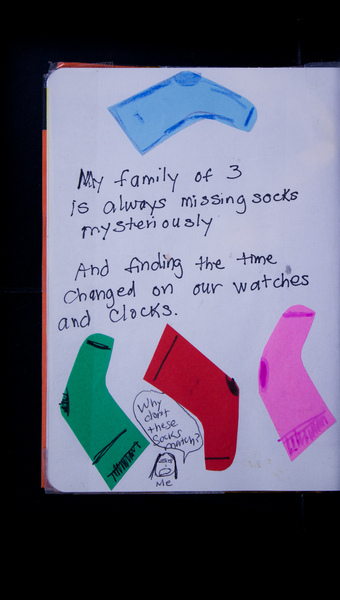 My family of 3
is always missing socks
mysteriously
And finding the time
changed on our watches
and clocks.
Why
don't
these
socks
match?
Me